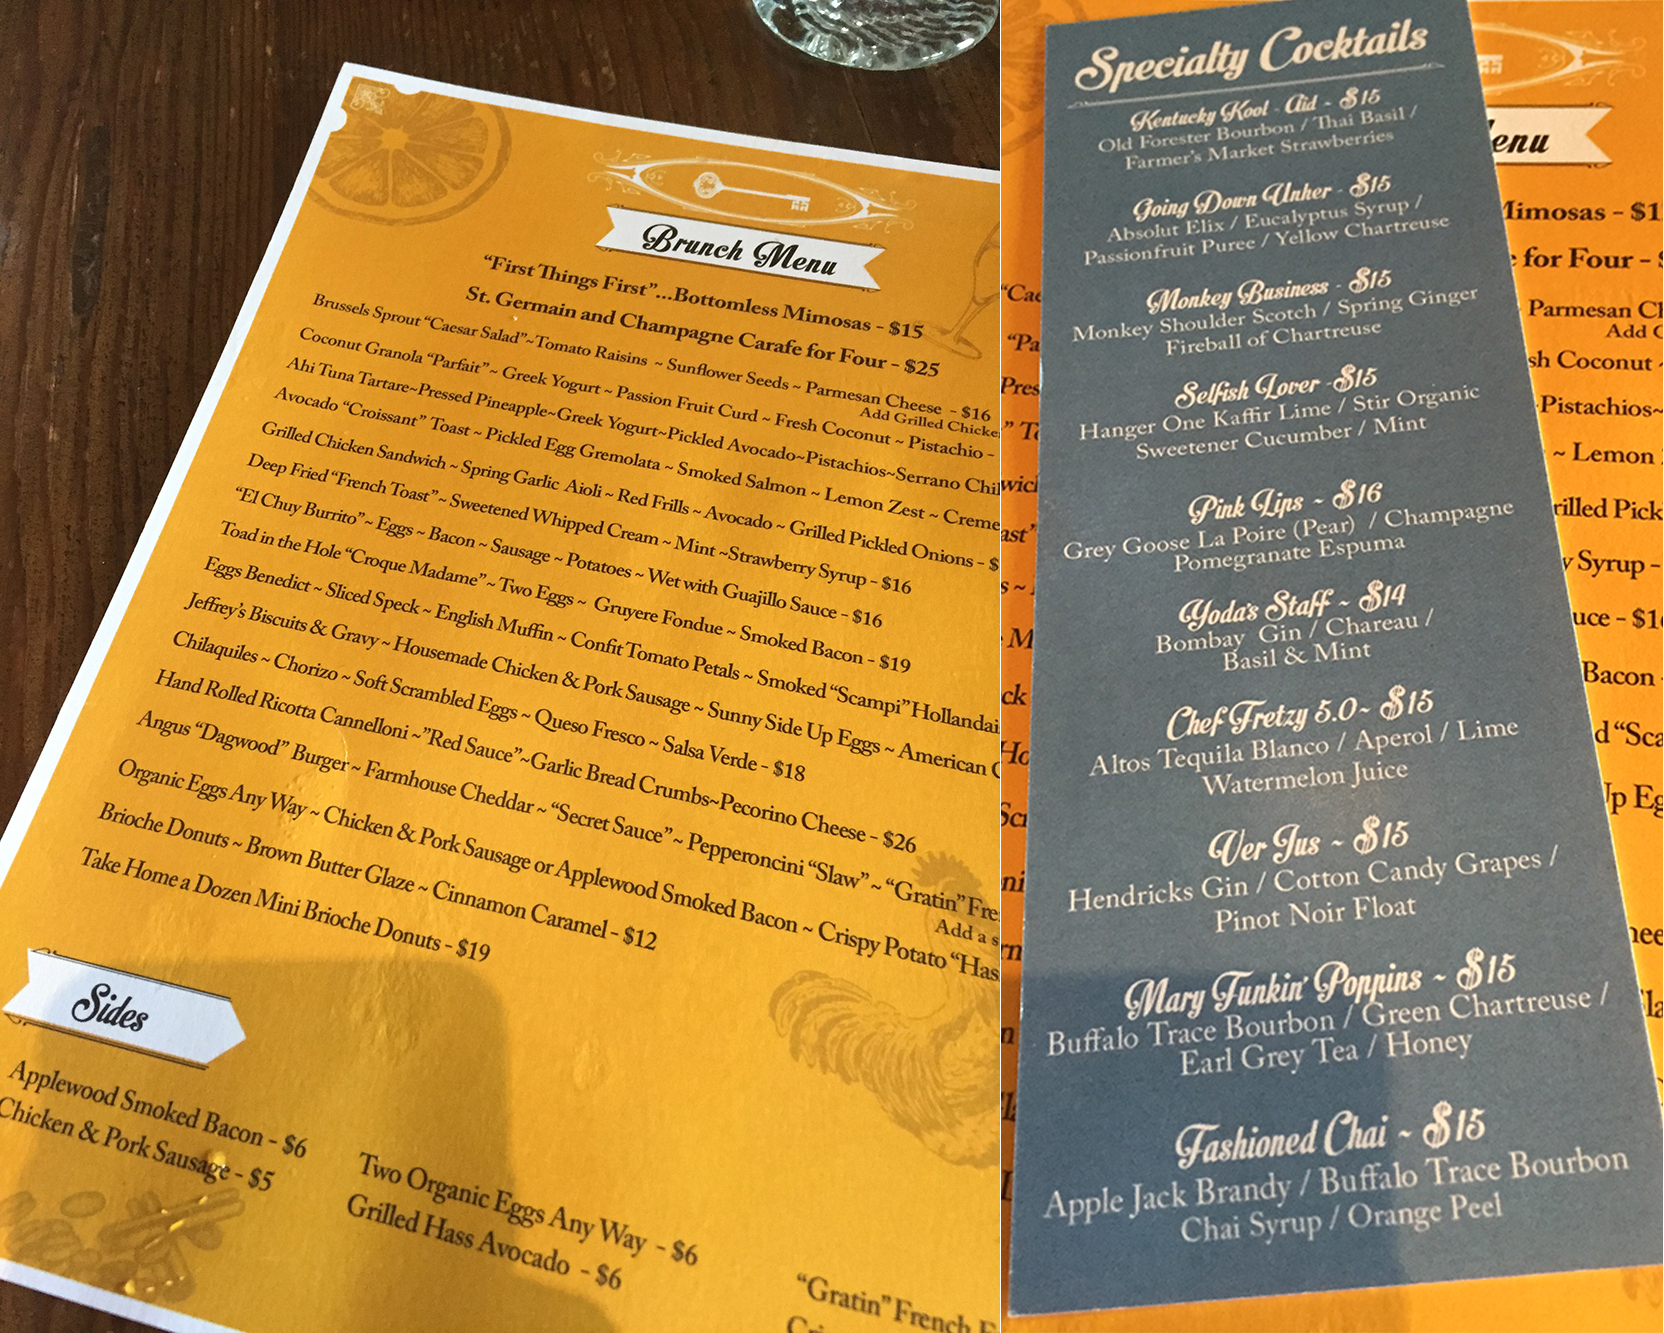 Brunch Menu
“First Things First”...Bottomless Mimosas - $15
St. Germain and Champagne Carafe for Four - $25
Brussels Sprout “Caesar Salad”~Tomato Raisins ~ Sunflower Seeds ~ Parmesan Cheese - $16
Add Grilled Chicke
Coconut Granola “Parfait”~ Greek Yogurt ~ Passion Fruit Curd ~ Fresh Coconut ~ Pistachio -
Ahi Tuna Tartare~Pressed Pineapple~Greek Yogurt~Pickled Avocado~Pistachios~Serrano Chil
Avocado “Croissant” Toast ~ Pickled Egg Gremolata ~ Smoked Salmon ~ Lemon Zest ~ Creme
Grilled Chicken Sandwich ~ Spring Garlic Aioli ~ Red Frills ~ Avocado ~ Grilled Pickled Onions - $
Deep Fried “French Toast”~ Sweetened Whipped Cream ~ Mint ~Strawberry Syrup - $16
“El Chuy Burrito”~ Eggs ~ Bacon ~ Sausage ~ Potatoes ~ Wet with Guajillo Sauce - $16
Toad in the Hole “Croque Madame”~ Two Eggs ~ Gruyere Fondue ~ Smoked Bacon - $19
Eggs Benedict ~ Sliced Speck ~ English Muffin ~ Confit Tomato Petals ~ Smoked “Scampi” Hollandai
Jeffrey's Biscuits & Gravy ~ Housemade Chicken & Pork Sausage ~ Sunny Side Up Eggs ~ American C
Chilaquiles ~ Chorizo ~ Soft Scrambled Eggs ~ Queso Fresco ~ Salsa Verde - $18
Hand Rolled Ricotta Cannelloni ~”Red Sauce”~Garlic Bread Crumbs~Pecorino Cheese - $26
Angus “Dagwood” Burger ~ Farmhouse Cheddar ~ “Secret Sauce”~ Pepperoncini “Slaw”~ “Gratin” Fre
Add a s
Organic Eggs Any Way ~ Chicken & Pork Sausage or Applewood Smoked Bacon ~ Crispy Potato “Has
Brioche Donuts ~ Brown Butter Glaze ~ Cinnamon Caramel - $12
Take Home a Dozen Mini Brioche Donuts - $19
Sides
Applewood Smoked Bacon - $6
Chicken & Pork Sausage - $5
Two Organic Eggs Any Way - $6
Grilled Hass Avocado - $6
“Gratin” French F
Specialty Cocktails
Kentucky Kool - Aid ~ $15
Old Forester Bourbon / Thai Basil /
Farmer's Market Strawberries
Going Down Unher - $15
Absolut Elix / Eucalyptus Syrup /
Passionfruit Puree / Yellow Chartreuse
Monkey Business - $15
Monkey Shoulder Scotch / Spring Ginger
Fireball of Chartreuse
Selfish Lover -$15
Hanger One Kaffir Lime / Stir Organic
Sweetener Cucumber / Mint
Pink Lips ~ $16
Grey Goose La Poire (Pear) / Champagne
Pomegranate Espuma
Yoda's Staff ~ $14
Bombay Gin / Chareau /
Basil & Mint
Chef Fretzy 5.0~ $15
Altos Tequila Blanco / Aperol / Lime
Watermelon Juice
Ver Jus ~ $15
Hendricks Gin / Cotton Candy Grapes /
Pinot Noir Float
Mary Funkin' Poppins ~ $15
Buffalo Trace Bourbon / Green Chartreuse /
Earl Grey Tea / Honey
Fashioned Chai ~ $15
Apple Jack Brandy / Buffalo Trace Bourbon
Chai Syrup / Orange Peel
enu
Mimosas - $1
for Four - $
Parmesan Ch
Add G
sh Coconut ~
Pistachios~
~ Lemon
rilled Pick
y Syrup -
uce - $16
Bacon
d “Sca
Up Eg